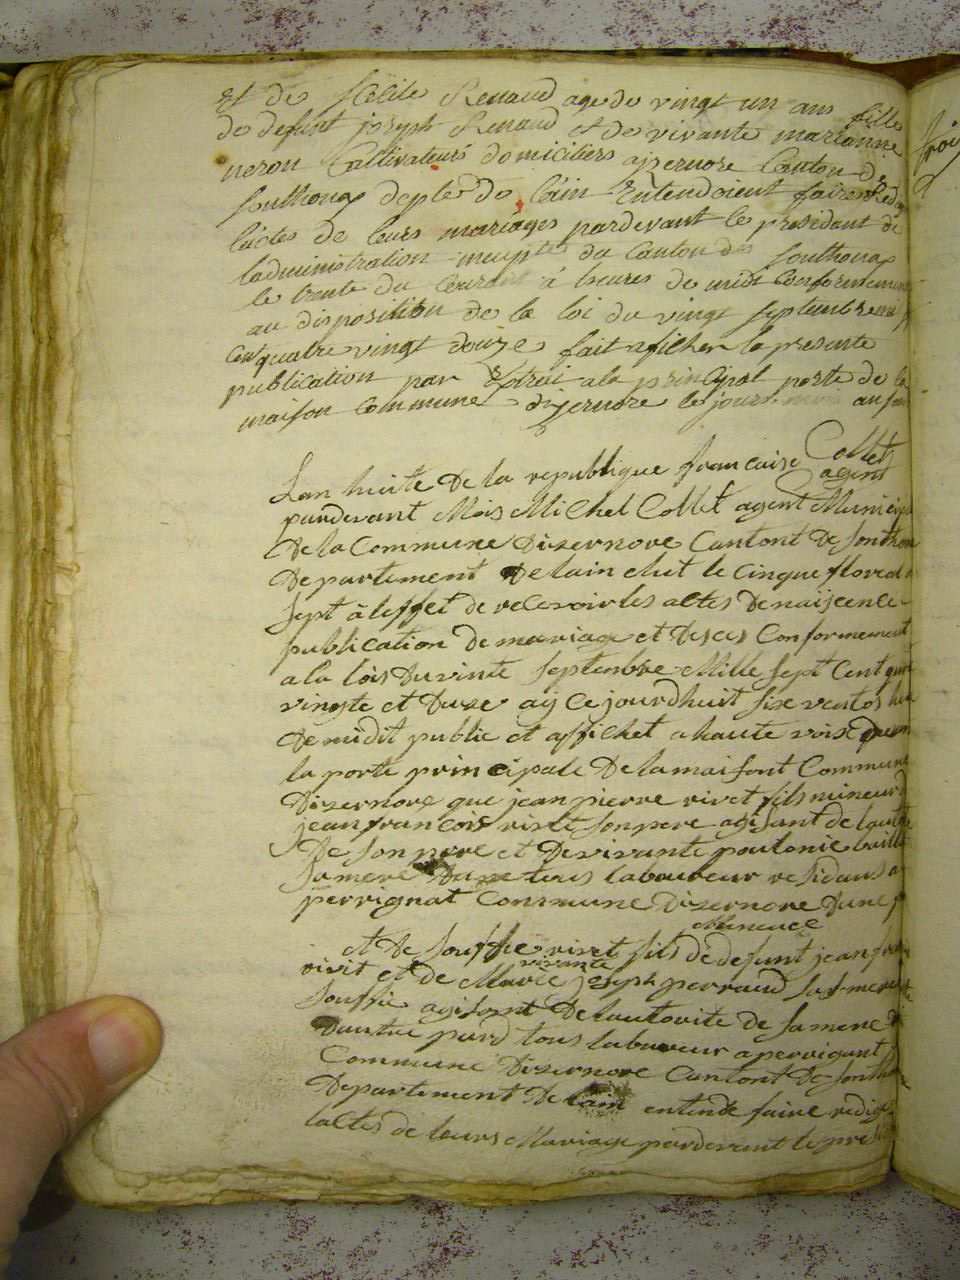 Et de félicité Renaud age de vingt un ans fille
de defunt joseph Renaud et de vivante marianne
neron Cultivateurs domiciliers a jsernore Canton de
Sonthonax deple de lain Entendoient faire Red
lactes de leurs mariages pardevant le president de
ladministration muniple du Canton de Sonthonax
le trente du Courant à heures de midi Conformement
au disposition de la loi du vingt septembre mil
Cent quatre vingt douze fait afficher la presente
publication par Extrai a la principal porte de la
maison Commune dyzernore le jour mois an
Collet
agent
Lan huite de la republique francaise
pardevant Mois Michel Collet agent Municip
De la Commune Dizernore Cantont de Sonthon
Departement De lain elut le cinque floreal
Sept à leffet de recevoir les actes De naissence
publication de mariage et deses Conformement
a la lois du vinte Septembre Mille Sept Cent quat
vingte et duze aij Ce jourdhuit six ventos
De midit public et affichet a haute voix
la porte principale De la maisont Commune
Dizernore que jean pierre rivet fils mineur d
jean francois rivet son pere agisant de lautor
De son pere et De vivante
sa mere tous laboureur residans a
perrignat Commune Dizernore Dune p
Mineure
et de Souffie rivet fils de defunt jean fr
vivante
rivit et de Marie joseph perraud sa mere
Souffie agisant De lautorite de sa mere
Dautre pard tous laboureur a perrignat
Commune Dizernore Cantont De Sontho
Departement De lain entende faire redige
lactes de leurs Mariage pardevant le pres